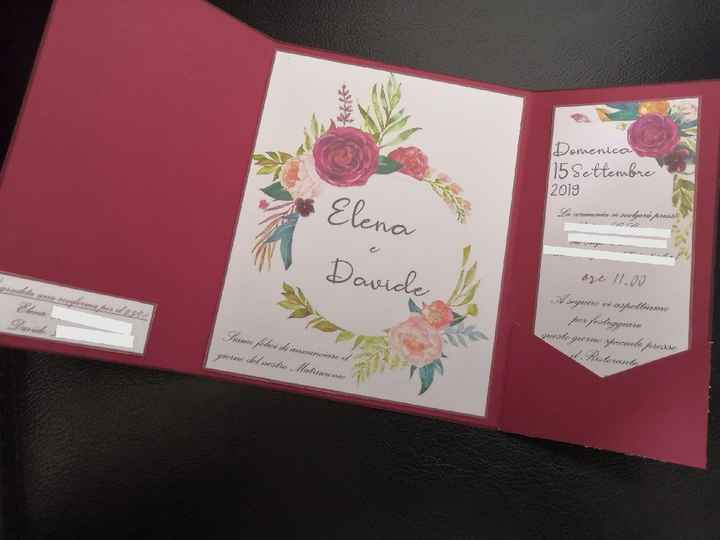 gradita una conferma per il
Elena
Davide
Elena
e
Davide
Siamo felici di annunciare il
giorno del nostro Matrimonio
Domenica
15 Settembre
2019
La cerimonia si svolgerà presso
ore 11.00
A seguire vi aspettiamo
per festeggiare
questo giorno speciale presso
il Ristorante